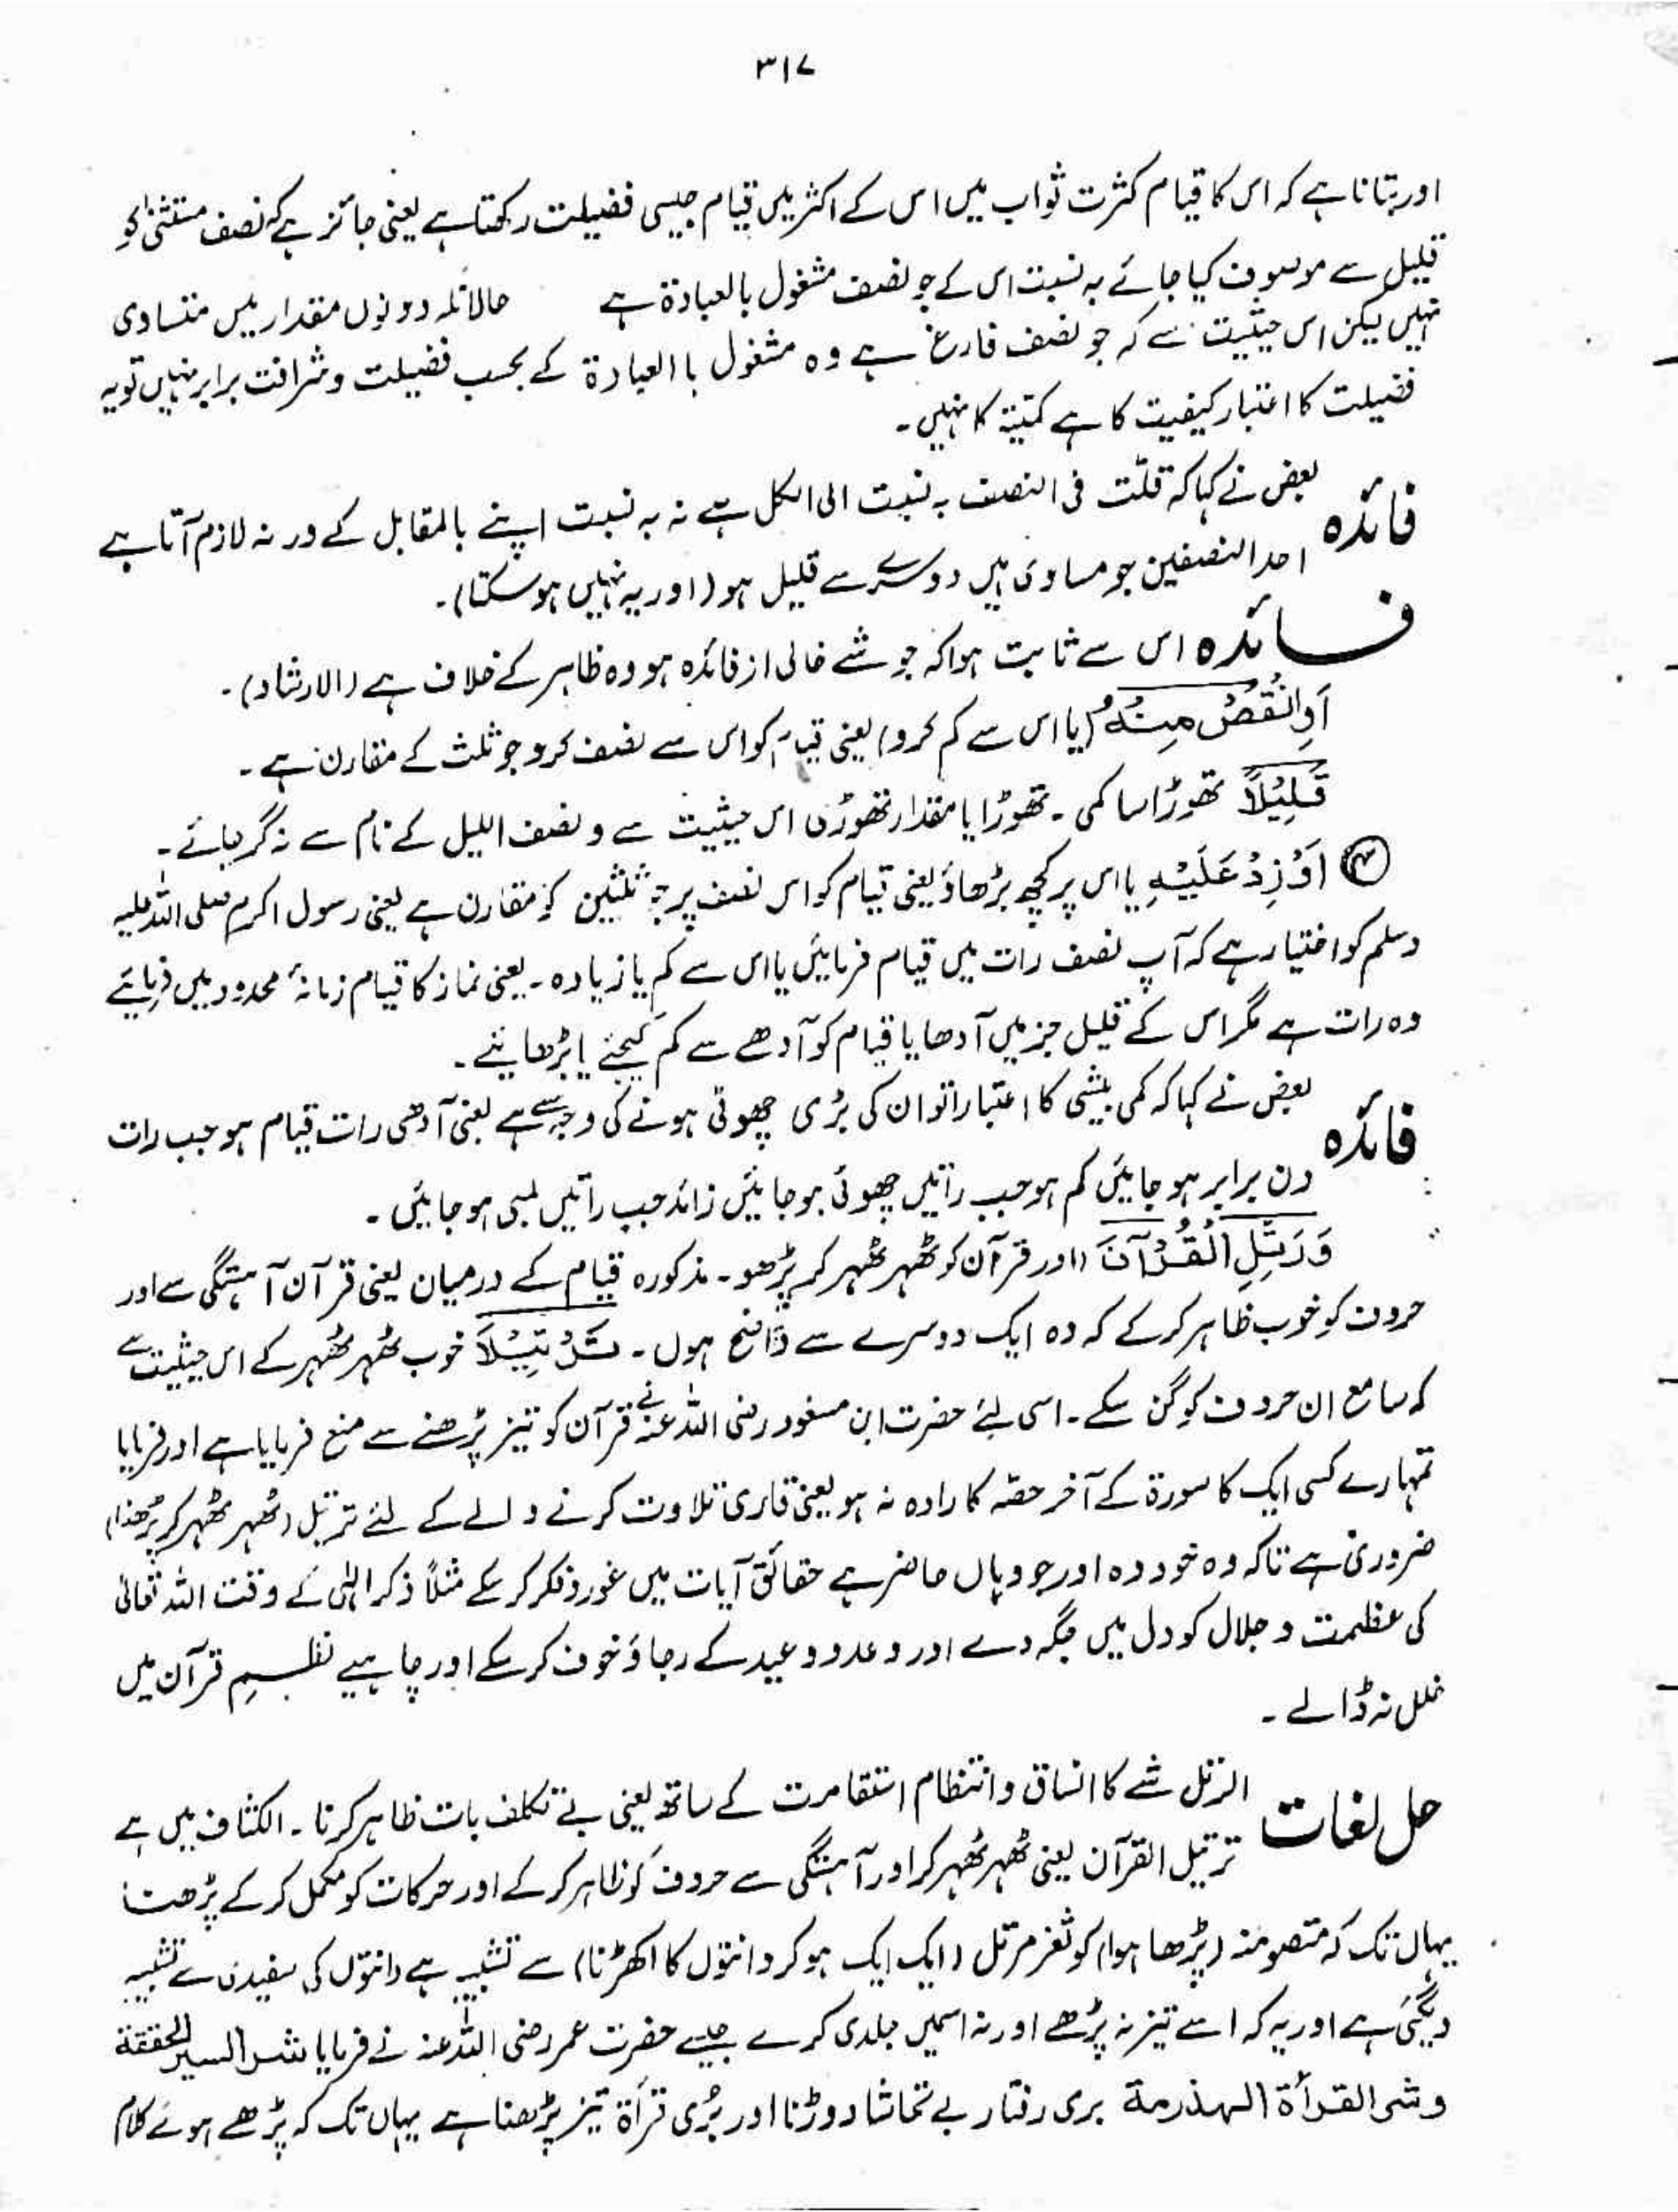 ۳۱۷
اور بتانا ہے کہ اس کا قیام کثرت ثواب میں اس کے اکثر میں قیام جیسی فضیلت رکھتا ہے یعنی جائز ہے کہ نصف مستثنیٰ کو
قلیل سے موصوف کیا جائے بہ نسبت اس کے جو نصف مشغول بالعبادۃ ہے حالانکہ دونوں مقدار میں متساوی
نہیں لیکن اس حیثیت سے کہ جو نصف فارغ ہے وہ مشغول باالعبادۃ کے بحسب فضیلت و شرافت برابر نہیں تو یہ
فضیلت کا اعتبار کیفیت کا ہے کمیّۃ کا نہیں۔
فائدہ بعض نے کہا کہ قلّت فی النصف بہ نسبت الی الکل ہے نہ بہ نسبت اپنے بالمقابل کے ورنہ لازم آتا ہے
احد النصفین جو مساوی ہیں دوسرے سے قلیل ہو (اور یہ نہیں ہو سکتا)۔
فائدہ اس سے ثابت ہوا کہ جو شے خالی از فائدہ ہو وہ ظاہر کے خلاف ہے (الارشاد)۔
اَوِانْقُصْ مِنْهُ (یا اس سے کم کرو) یعنی قیام کو اس سے نصف کرو جو ثلث کے مقارن ہے۔
قَلِيْلاً تھوڑا سا کمی۔ تھوڑا یا مقدار تھوڑی اس حیثیت سے و نصف اللیل کے نام سے نہ گر جائے۔
اَوْ زِدْ عَلَيْهِ یا اس پر کچھ بڑھاؤ یعنی قیام کو اس نصف پر جو ثلثین کو مقارن ہے یعنی رسول اکرم صلی اللہ علیہ
وسلم کو اختیار ہے کہ آپ نصف رات میں قیام فرمائیں یا اس سے کم یا زیادہ۔ یعنی نماز کا قیام زمانۂ محدود میں فرمائیے
وہ رات ہے مگر اس کے قلیل جز میں آدھا یا قیام کو آدھے سے کم کیجئے یا بڑھائیے۔
فائدہ بعض نے کہا کہ کمی بیشی کا اعتبار راتوں کی بڑی چھوٹی ہونے کی وجہ سے ہے یعنی آدھی رات قیام ہو جب رات
دن برابر ہو جائیں کم ہو جب راتیں چھوٹی ہو جائیں زائد جب راتیں لمبی ہو جائیں۔
وَرَتِّلِ الْقُرْآنَ (اور قرآن کو ٹھہر ٹھہر کر پڑھو۔ مذکورہ قیام کے درمیان یعنی قرآن آہستگی سے اور
حروف کو خوب ظاہر کر کے کہ وہ ایک دوسرے سے واضح ہوں۔ تَرْتِيْلاً خوب ٹھہر ٹھہر کے اس حیثیت سے
کہ سامع ان حروف کو گن سکے۔ اسی لئے حضرت ابن مسعود رضی اللہ عنہ نے قرآن کو تیز پڑھنے سے منع فرمایا ہے اور فرمایا
تمہارے کسی ایک کا سورۃ کے آخر حصّہ کا رادہ نہ ہو یعنی قاری تلاوت کرنے والے کے لئے ترتیل (ٹھہر ٹھہر کر پڑھنا)
ضروری ہے تاکہ وہ خود وہ اور جو وہاں حاضر ہے حقائق آیات میں غور و فکر کر سکے مثلاً ذکر الٰہی کے وقت اللہ تعالیٰ
کی عظمت و جلال کو دل میں جگہ دے اور وعد و وعید کے رجا و خوف کر سکے اور چاہیے نظمِ قرآن میں
خلل نہ ڈالے۔
حل لغات الرتل شے کا اتساق و انتظام استقامت کے ساتھ یعنی بے تکلف بات ظاہر کرنا۔ الکشاف میں ہے
ترتیل القرآن یعنی ٹھہر ٹھہر کر اور آہستگی سے حروف کو ظاہر کر کے اور حرکات کو مکمل کر کے پڑھنا
یہاں تک کہ (پڑھا ہوا) کو ثغر مرتل (ایک ایک ہو کر دانتوں کا اکھڑنا) سے تشبیہ ہے دانتوں کی سفیدی سے تشبیہ
دیگئی ہے اور یہ کہ اسے تیز نہ پڑھے اور نہ اسمیں جلدی کرے جیسے حضرت عمر رضی اللہ عنہ نے فرمایا شر السیر الحقحقۃ
وشر القرأة الہذرمۃ بری رفتار بے تحاشا دوڑنا اور بُری قرأۃ تیز پڑھنا ہے یہاں تک کہ پڑھے ہوئے کلام